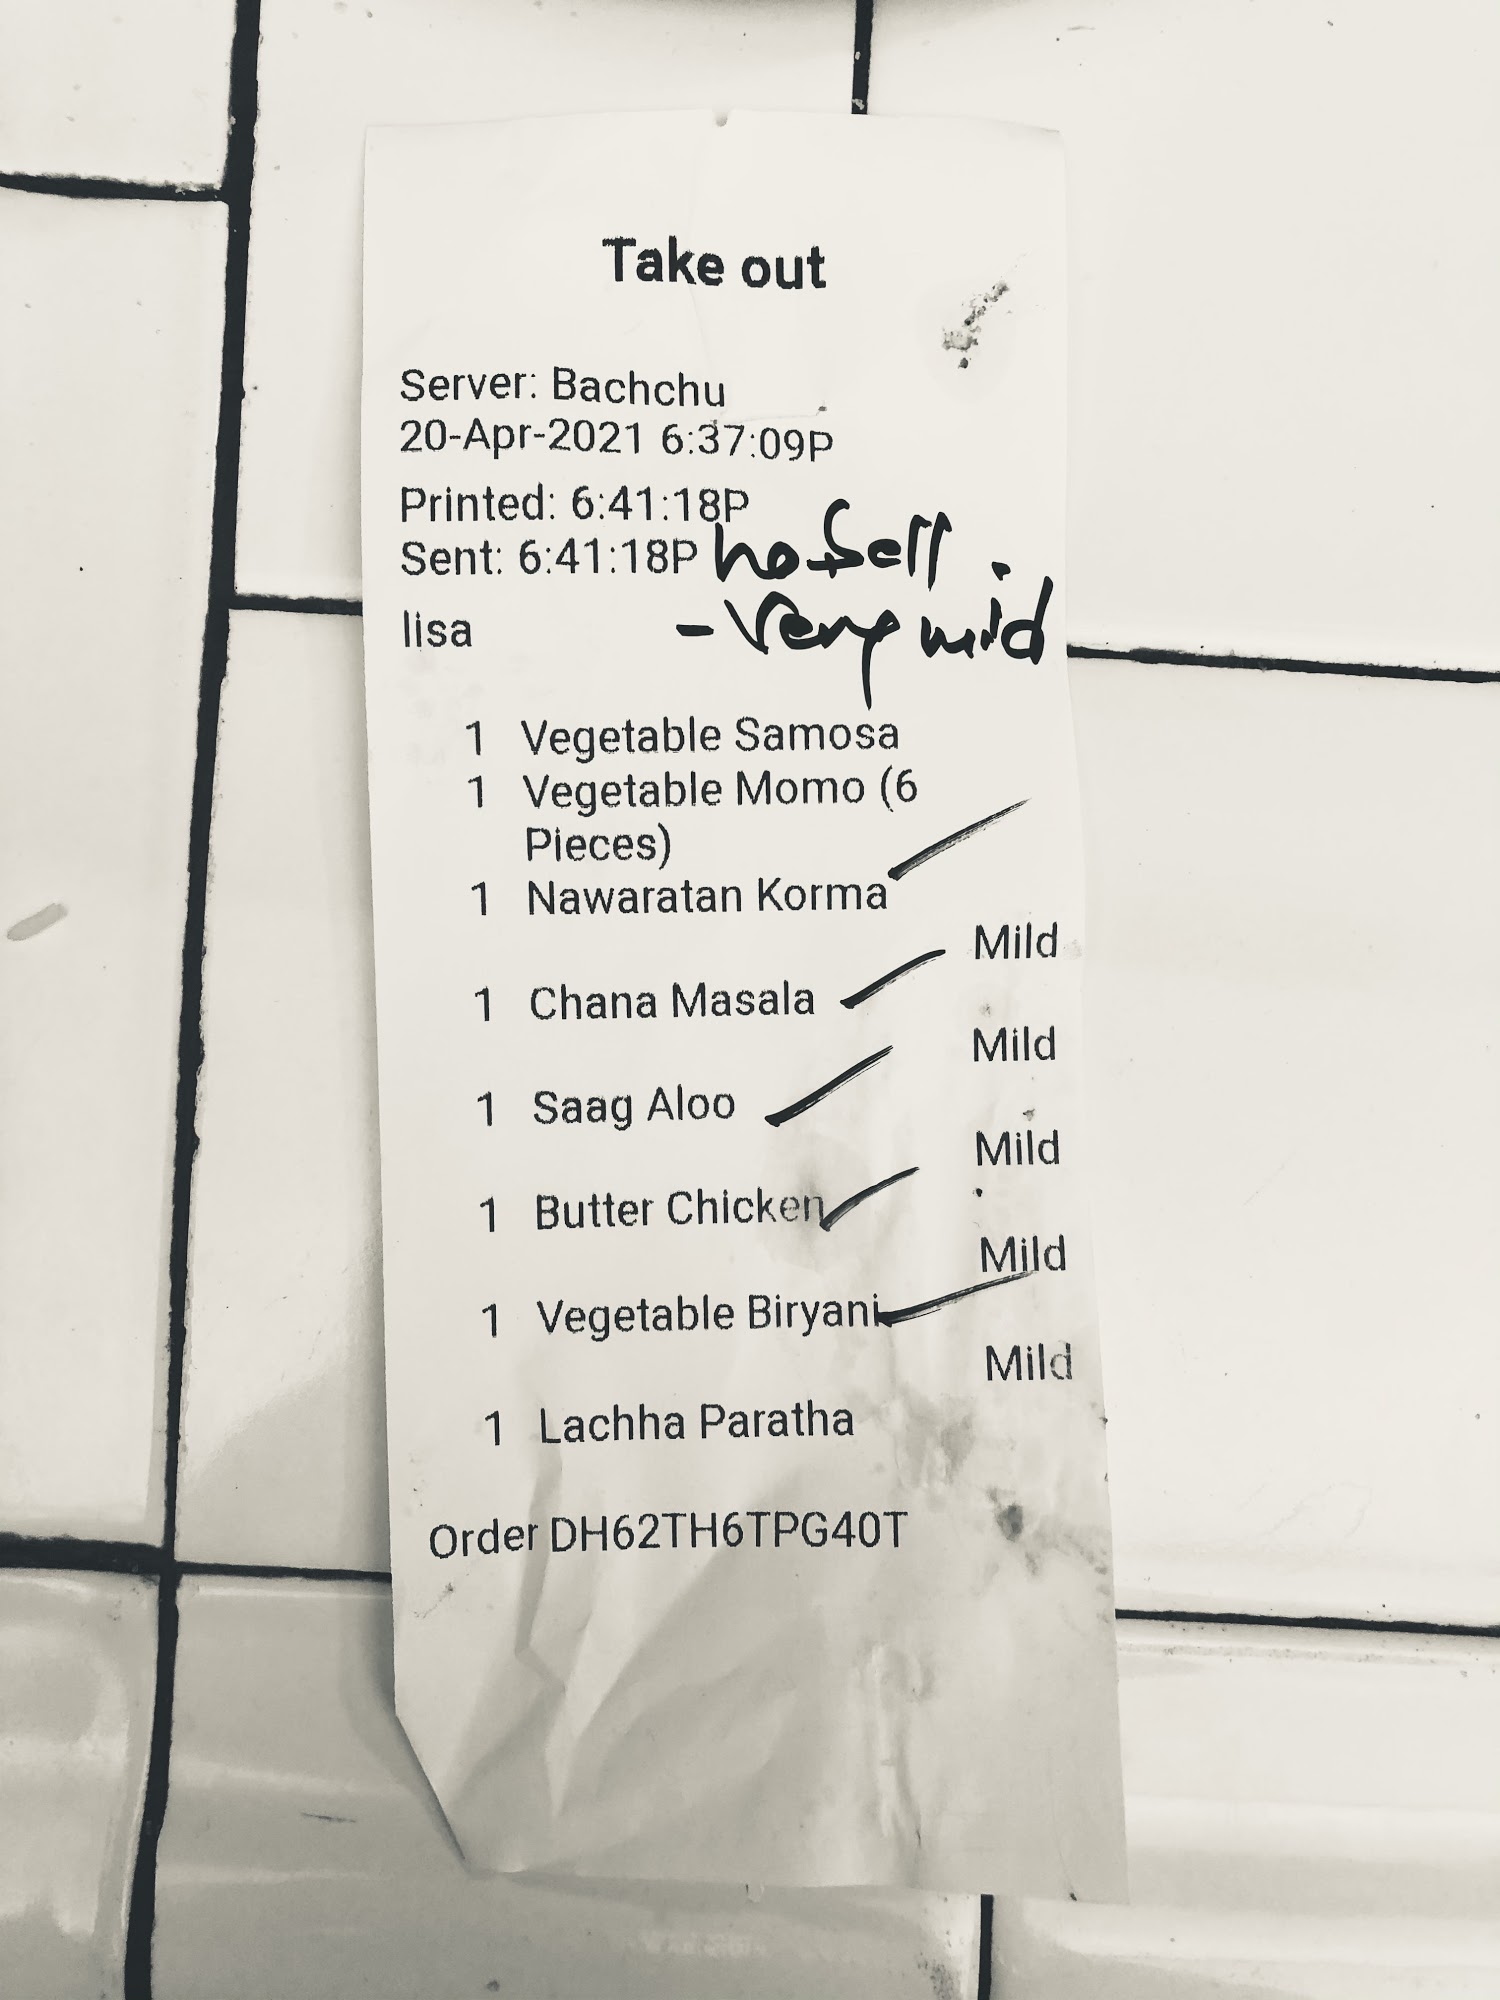 Take out
Server: Bachchu
20-Apr-2021 6:37:09P
Printed: 6:41:18P
Sent: 6:41:18P no
lisa - Very mild
1 Vegetable Samosa
1 Vegetable Momo (6
Pieces)
1 Nawaratan Korma
Mild
1 Chana Masala
Mild
1 Saag Aloo
Mild
1 Butter Chicken
Mild
1 Vegetable Biryani
Mild
1 Lachha Paratha
Order DH62TH6TPG40T